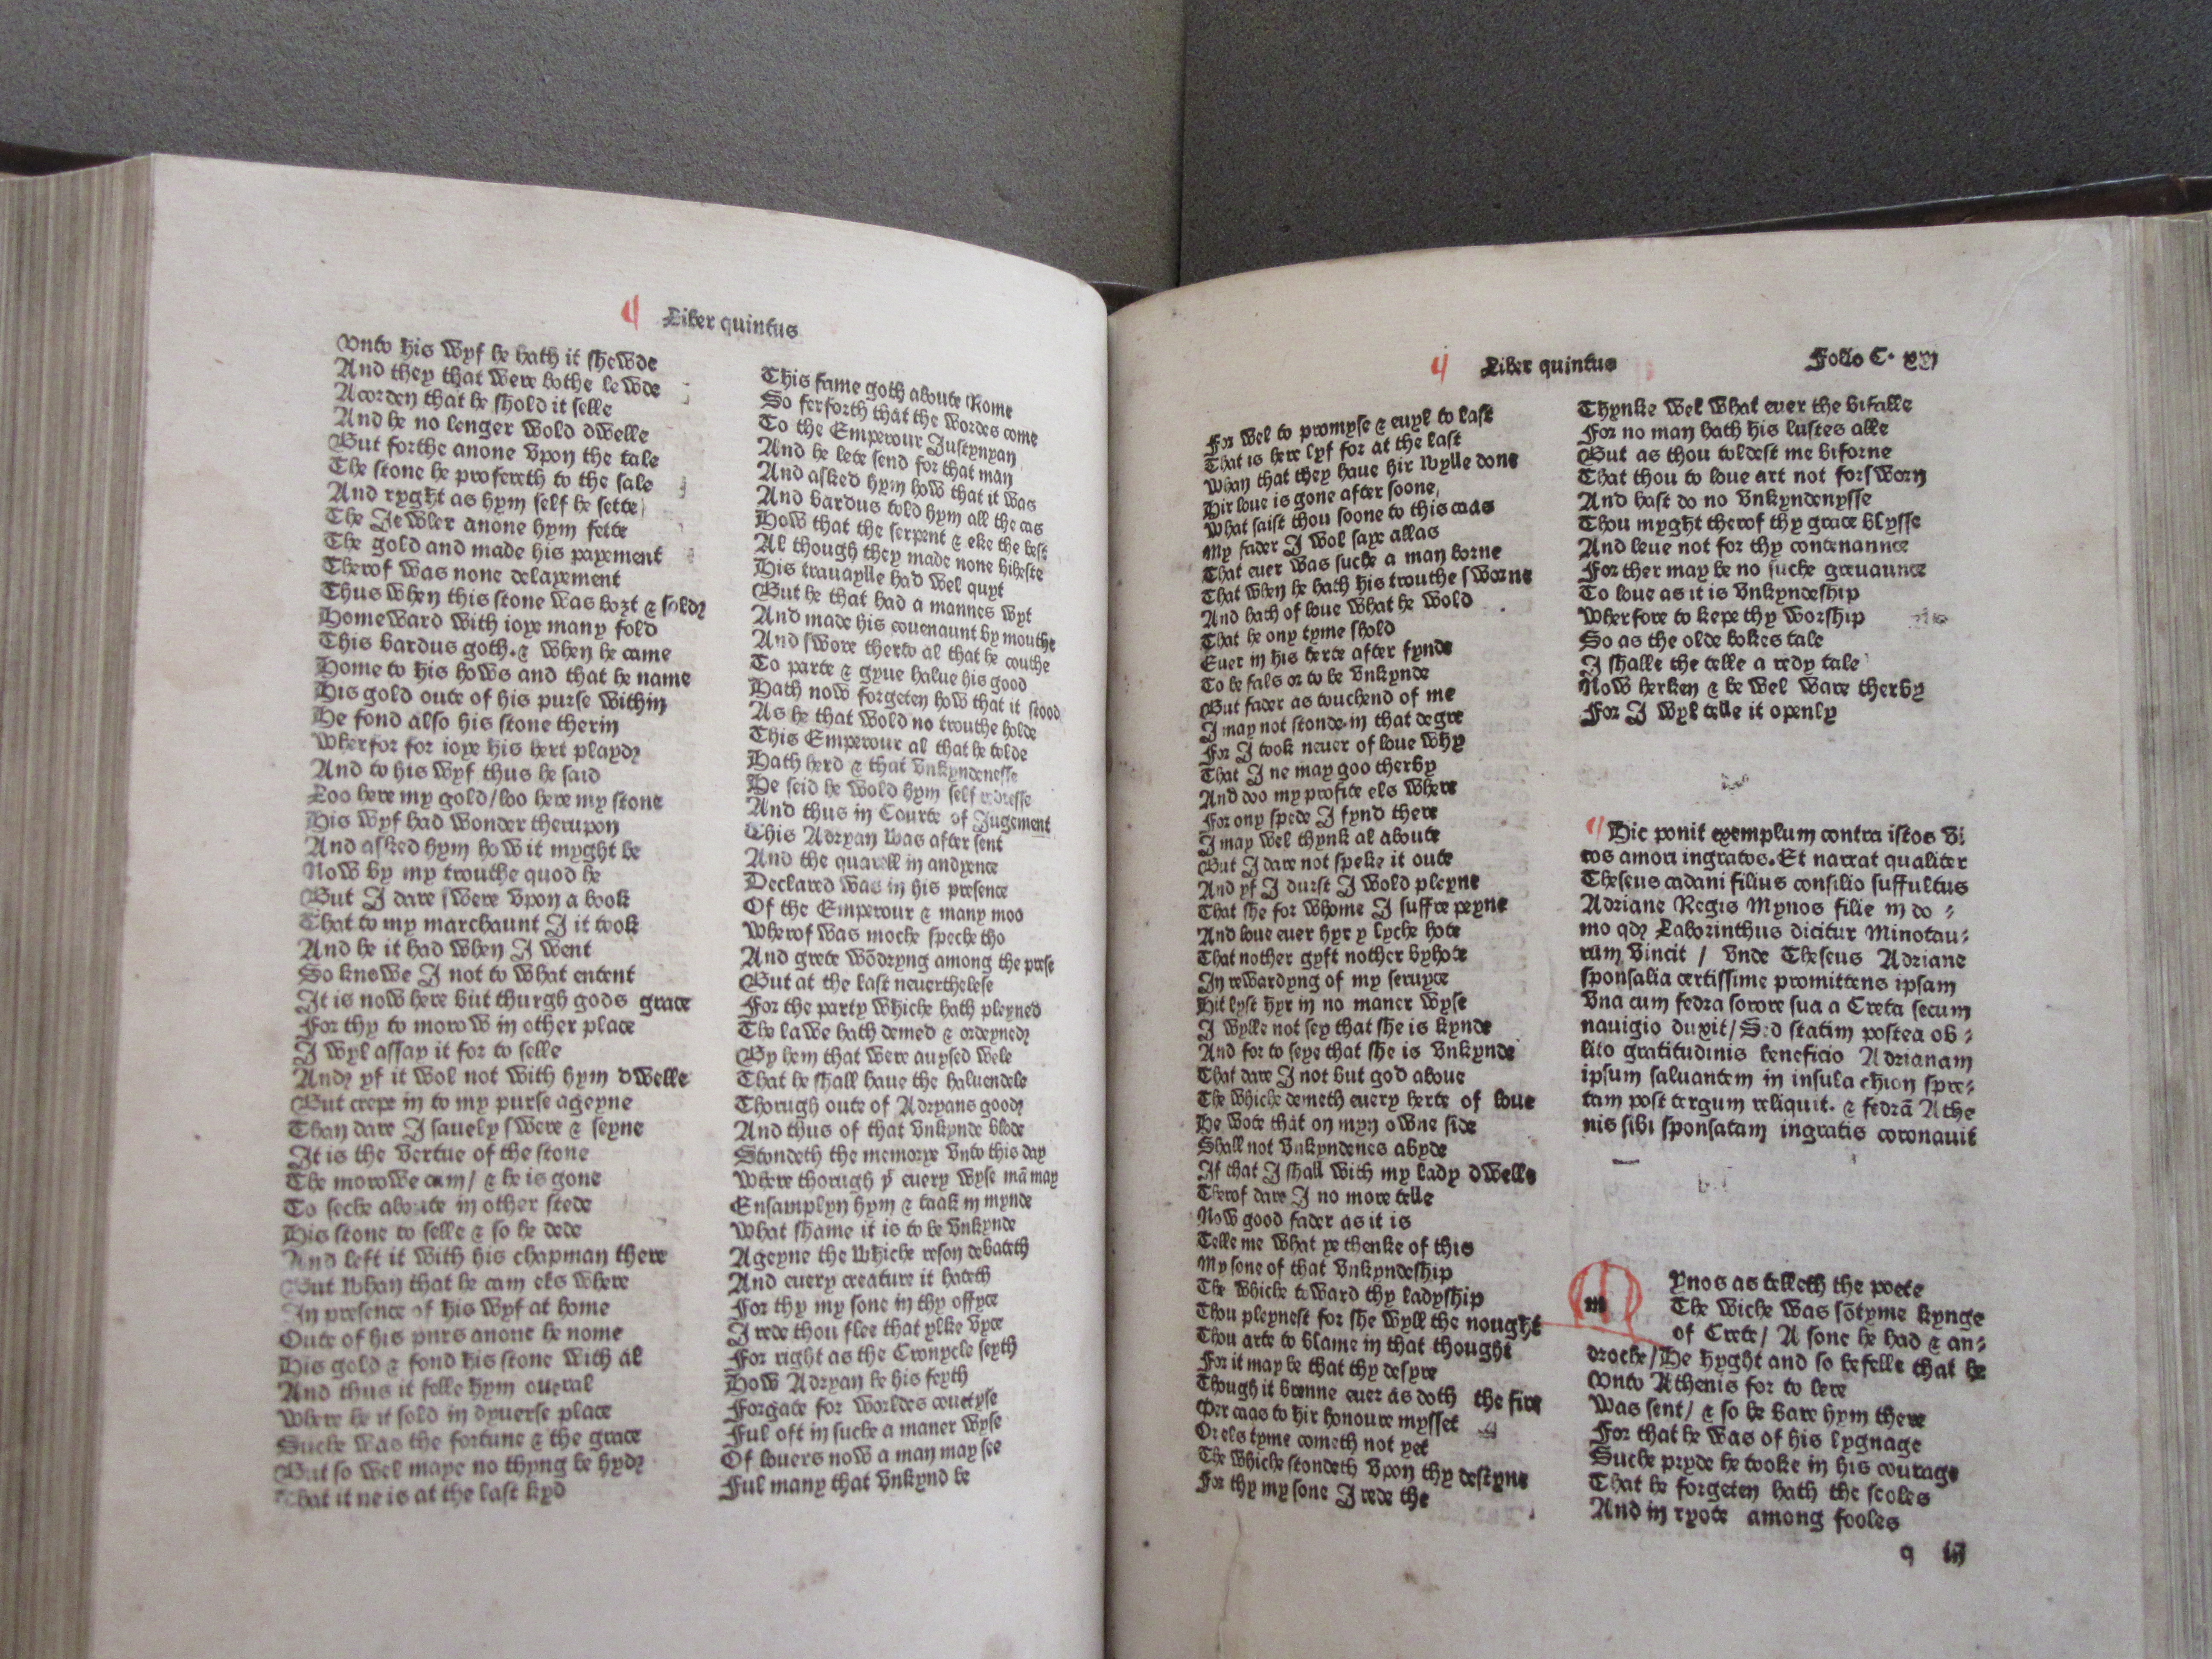 Liber quintus
Vnto his wyf he hath it shewde
And they that were bothe lewde
Acorden that he shold it selle
And he no lenger wold dwelle
But forthe anone vpon the tale
The stone he profereth to the sale
And ryght as hym self he sette
The Jewler anone hym fette
The gold and made his payement
Therof was none delayement
Thus when this stone was bozt & sold
Homeward with ioye many fold
This bardus goth. & when he came
Home to his hows and that he name
His gold oute of his purse within
He fond also his stone therin
Wherfor for ioye his hert playd
And to his wyf thus he said
Loo here my gold/loo here my stone
His wyf had wonder therupon
And asked hym how it myght be
Now by my trouthe quod he
But I dare swere vpon a book
That to my marchaunt I it took
And he it had when I went
So knowe I not to what entent
It is now here but thurgh gods grace
For thy to morow in other place
I wyl assay it for to selle
And yf it wol not with hym dwelle
But crepe in to my purse ageyne
Than dare I sauely swere & seyne
It is the vertue of the stone
The morowe cam/ & he is gone
To seche aboute in other stede
His stone to selle & so he dede
And left it with his chapman there
But whan that he cam els where
In presence of his wyf at home
Oute of his purs anone he nome
His gold & fond his stone with al
And thus it felle hym oueral
Where he it sold in dyuerse place
Suche was the fortune & the grace
But so wel maye no thyng be hyd
That it ne is at the last kyd
This fame goth aboute Rome
So ferforth that the wordes come
To the Emperour Justynyan
And he lete send for that man
And asked hym how that it was
And bardus told hym all the cas
How that the serpent & eke the best
Al though they made none biheste
His trauaylle had wel quyt
But he that had a mannes wyt
And made his couenaunt by mouthe
And swore therto al that he couthe
To parte & gyue halue his good
Hath now forgeten how that it stood
As he that wold no trouthe holde
This Emperour al that he tolde
Hath herd & that vnkyndenesse
He seid he wold hym self redresse
And thus in Courte of Jugement
This Adryan was after sent
And the quarell in audyence
Declared was in his presence
Of the Emperour & many moo
Wherof was moche speche tho
And grete wōdryng among the prese
But at the last neuerthelese
For the party whiche hath pleyned
The lawe hath demed & ordeyned
By hem that were auysed wele
That he shall haue the haluendele
Thorugh oute of Adryans good
And thus of that vnkynde blode
Stondeth the memorye vnto this day
Where thorugh yͭ euery wyse mā may
Ensamplyn hym & taak in mynde
What shame it is to be vnkynde
Ageyne the whiche reson debateth
And euery creature it hateth
For thy my sone in thy offyce
I rede thou flee that ylke vyce
For right as the Cronycle seyth
How Adryan be his feyth
Forgate for worldes couetyse
Ful oft in suche a maner wyse
Of louers now a man may see
Ful many that vnkynd be
Liber quintus Folio C. xxj
For wel to promyse & euyl to last
That is here lyf for at the last
Whan that they haue hir wylle done
Hir loue is gone after soone
What saist thou soone to this caas
My fader I wol saye allas
That euer was suche a man borne
That when he hath his trouthe sworne
And hath of loue what he wold
That he ony tyme shold
Euer in his herte after fynde
To be fals or to be vnkynde
But fader as touchend of me
I may not stonde in that degre
For I took neuer of loue why
That I ne may goo therby
And doo my profite els where
For ony spede I fynd there
I may wel thynk al aboute
But I dare not speke it oute
And yf I durst I wold pleyne
That she for whome I suffre peyne
And loue euer hyr y lyche hote
That nother gyft nother byhote
In rewardyng of my seruyce
Hit lyst hyr in no maner wyse
I wylle not sey that she is kynde
And for to seye that she is vnkynde
That dare I not but god aboue
The whiche demeth euery herte of loue
He wote that on myn owne side
Shall not vnkyndenes abyde
If that I shall with my lady dwelle
Therof dare I no more telle
Now good fader as it is
Telle me what ye thenke of this
My sone of that vnkyndeship
The whiche toward thy ladyship
Thou pleynest for she wyll the nought
Thou arte to blame in that thought
For it may be that thy desyre
Though it brenne euer as doth the fire
Per caas to hir honoure mysset
Or els tyme cometh not yet
The whiche stondeth vpon thy destyne
For thy my sone I rede the
Thynke wel what euer the bifalle
For no man hath his lustes alle
But as thou toldest me biforne
That thou to loue art not forsworn
And hast do no vnkyndenysse
Thou myght therof thy grace blysse
And leue not for thy contenannce
For ther may be no suche greuaunce
To loue as it is vnkyndeship
Wherfore to kepe thy worship
So as the olde bokes tale
I shalle the telle a redy tale
Now herken & be wel ware therby
For I wyl telle it openly
Hic ponit exemplum contra istos vi
ros amori ingratos. Et narrat qualiter
Theseus cadani filius consilio suffultus
Adriane Regis Mynos filie in do-
mo qd Laborinthus dicitur Minotau-
rum vincit / vnde Theseus Adriane
sponsalia certissime promittens ipsam
vna cum fedra sorore sua a Creta secum
nauigio duxit/ Sed statim postea ob-
lito gratitudinis beneficio Adrianam
ipsum saluantem in insula chion spre-
tam post tergum reliquit. & fedrā Athe
nis sibi sponsatam ingratis coronauit
m ynos as telleth the poete
The wiche was sōtyme kynge
of Crete/ A sone he had & an-
droche/ He hyght and so befelle that he
Vnto Athenis for to lere
Was sent/ & so he bare hym there
For that he was of his lygnage
Suche pryde he tooke in his courage
That he forgeten hath the scoles
And in ryote among fooles
q iij